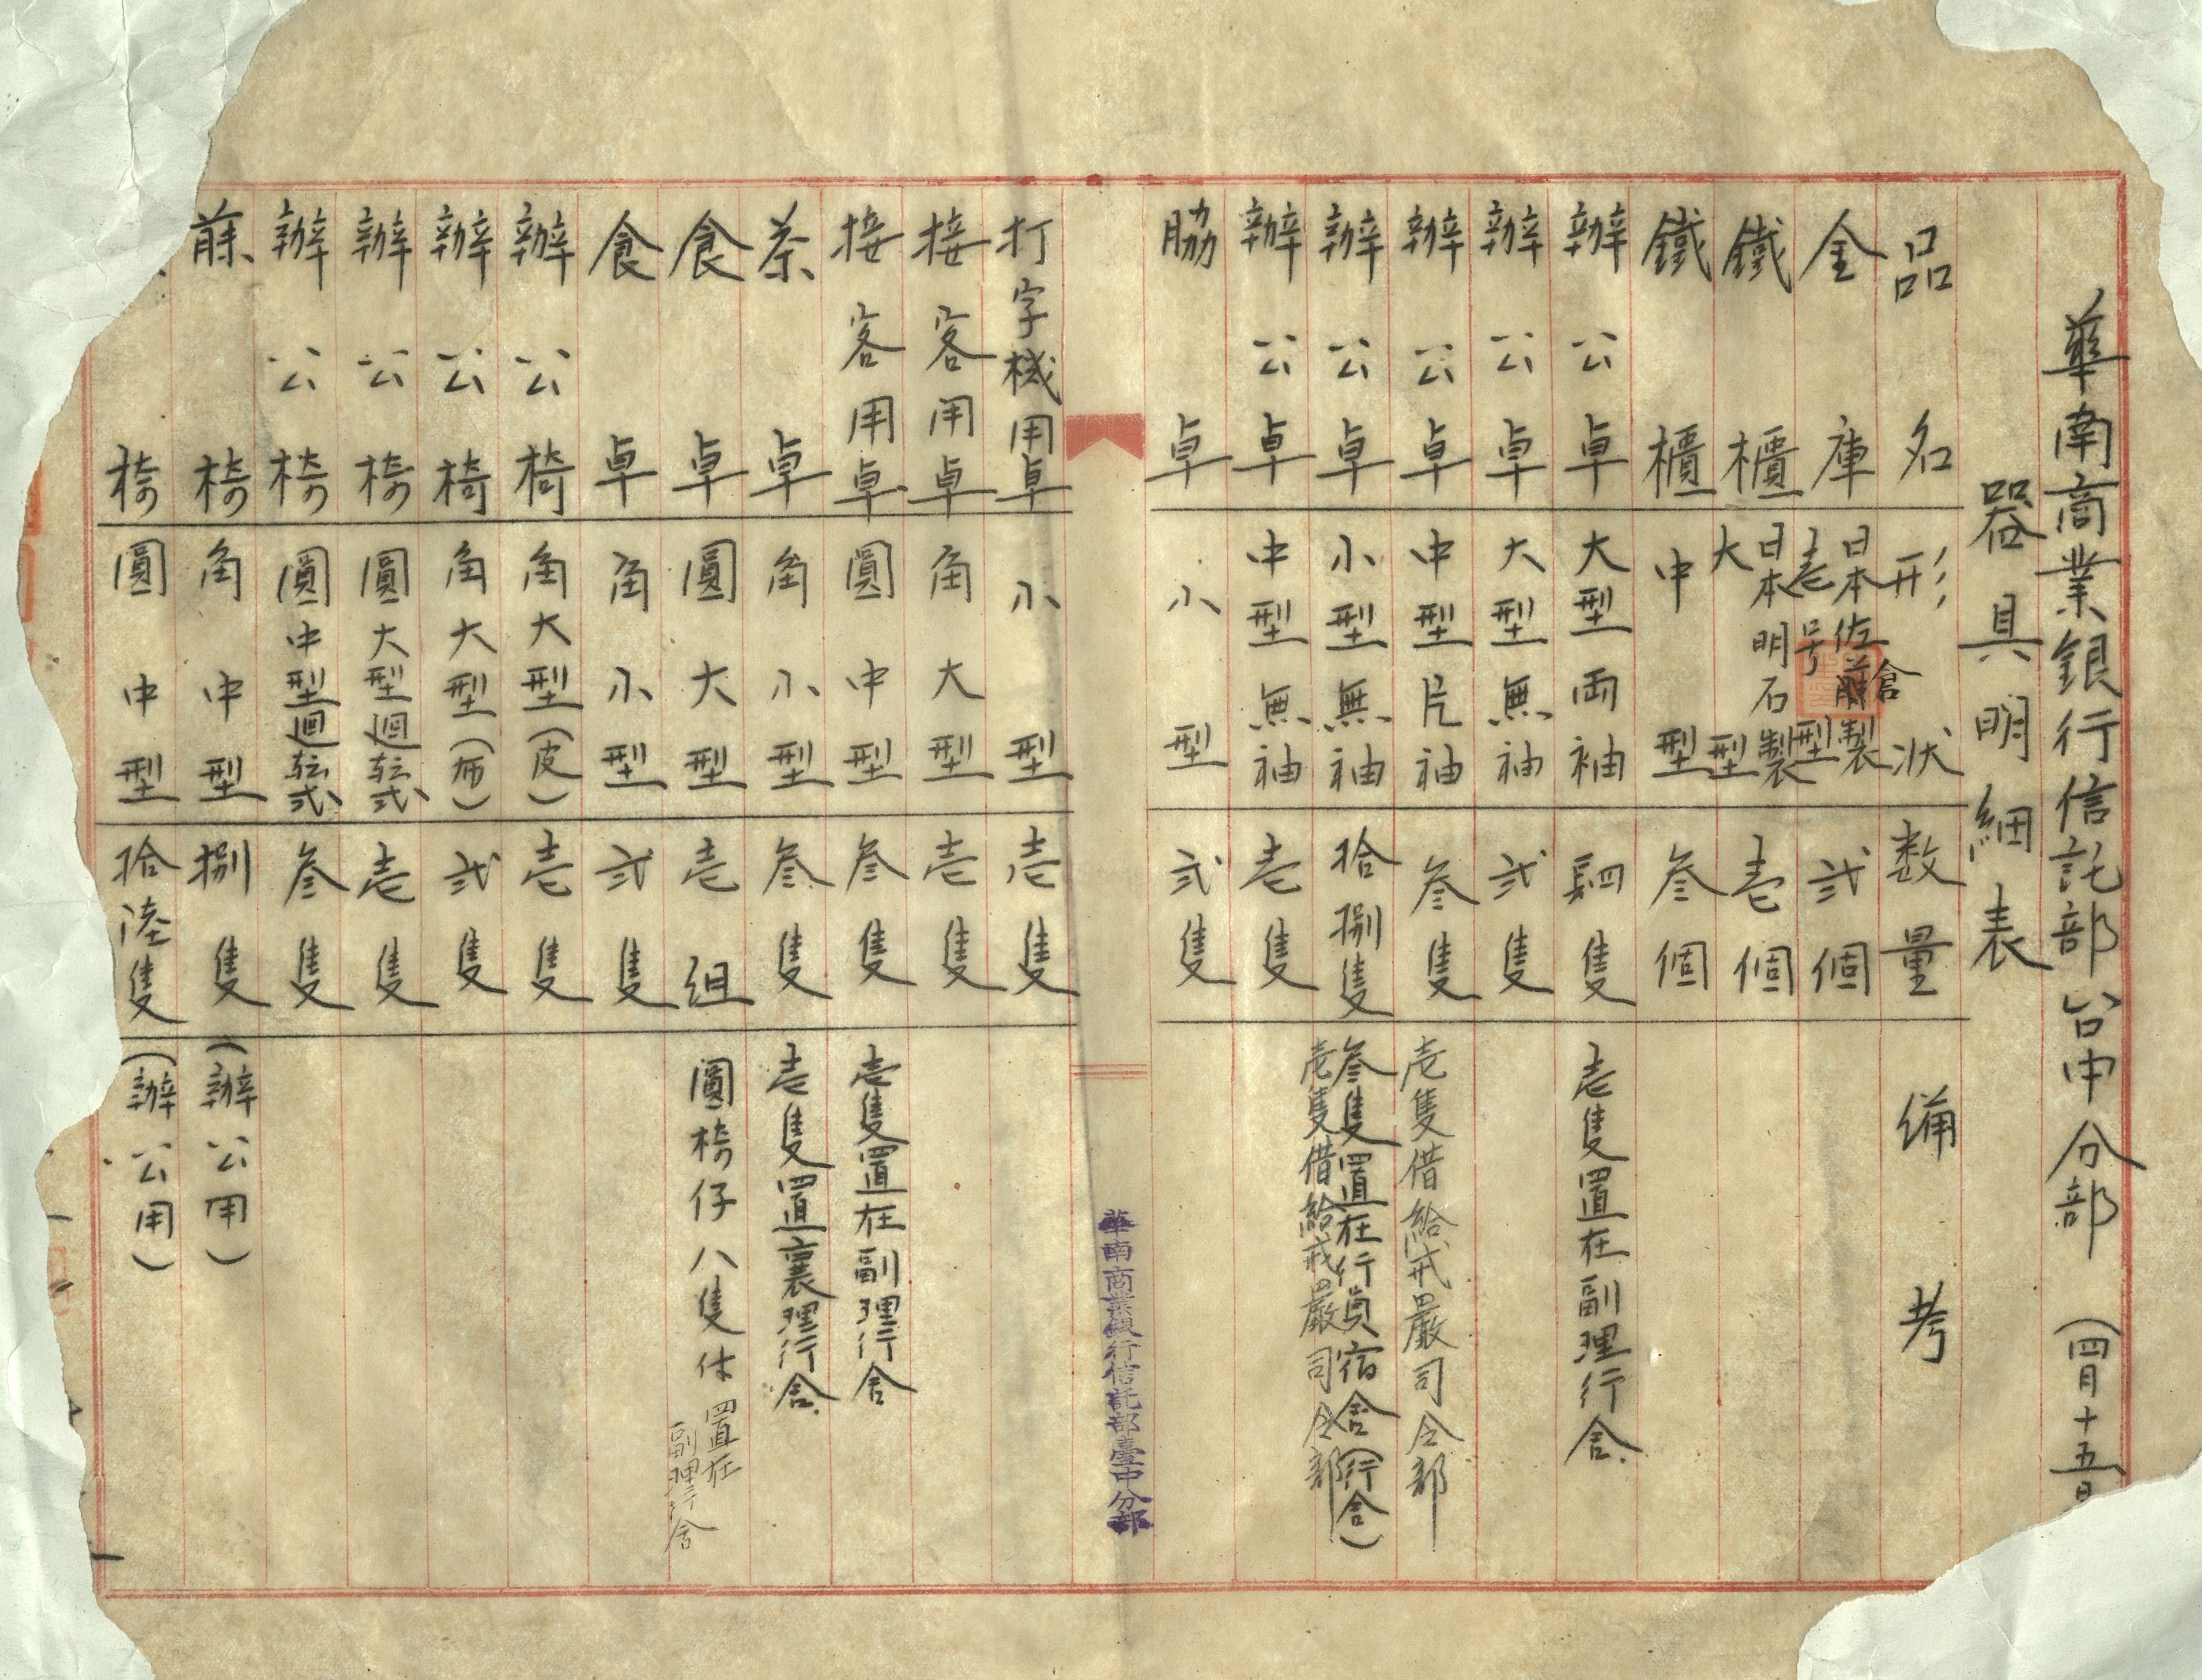 華南商業銀行信託部台中分部 (四月十五日
器具明細表
品名 形狀 数量 備考
金庫 日本佐倉製壱号型 弍個
鐵櫃 日本明石製大型 壱個
鐵櫃 中型 叁個
辦公卓 大型両袖 肆隻 壱隻置在副理行舍
辦公卓 大型無袖 弍隻
辦公卓 中型片袖 叁隻 壱隻借給戒嚴司令部
辦公卓 小型無袖 拾捌隻 叁隻置在行員宿舍(行舍)
壱隻借給戒嚴司令部
辦公卓 中型無袖 壱隻
脇卓 小型 弍隻
華南商業銀行信託部臺中分部
打字機用卓 小型 壱隻
接客用卓 角大型 壱隻
接客用卓 圓中型 叁隻 壱隻置在副理行舍
茶卓 角小型 叁隻 壱隻置襄理行舍
食卓 圓大型 壱組 圓椅仔八隻休 置在副理行舍
食卓 角小型 弍隻
辦公椅 角大型(皮) 壱隻
辦公椅 角大型(布) 弍隻
辦公椅 圓大型迴転式 壱隻
辦公椅 圓中型迴転式 叁隻
椅 角中型 捌隻 (辦公用)
椅 圓中型 拾陸隻 (辦公用)